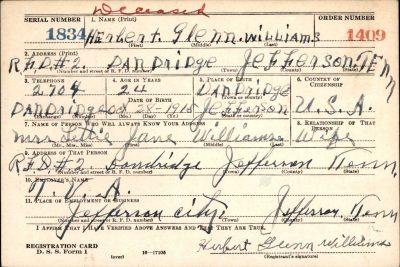 Deceased
SERIAL NUMBER 1. NAME (Print) ORDER NUMBER
1834 Herbert Glenn Williams 1409
(First) (Middle) (Last)
2. ADDRESS (Print)
R.F.D.#2. DANDRIDGE JEFFERSON TENN
(Number and street or R. F. D. number) (Town) (County) (State)
3. TELEPHONE 4. AGE IN YEARS 5. PLACE OF BIRTH 6. COUNTRY OF CITIZENSHIP
2704 24 DANDRIDGE
DATE OF BIRTH (Town or county)
DANDRIDGE 28-1915 Jefferson U.S.A.
(Exchange) (Number) (Mo.) (Day) (Yr.) (State or country)
7. NAME OF PERSON WHO WILL ALWAYS KNOW YOUR ADDRESS 8. RELATIONSHIP OF THAT PERSON
Mrs Jane Williams Wife
(Mr., Mrs., Miss) (First) (Middle) (Last)
9. ADDRESS OF THAT PERSON
R.F.D.#2. Dandridge Jefferson Tenn.
(Number and street or R. F. D. number) (Town) (County) (State)
10. EMPLOYER'S NAME
T.V.A.
11. PLACE OF EMPLOYMENT OR BUSINESS
Jefferson City Jefferson Tenn
(Number and street or R. F. D. number) (Town) (County) (State)
I AFFIRM THAT I HAVE VERIFIED ABOVE ANSWERS AND THAT THEY ARE TRUE.
REGISTRATION CARD
D. S. S. Form 1 (over) 16-17105 Herbert Glenn Williams
(Registrant's signature)